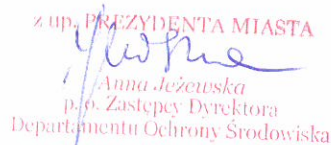 z up. PREZYDENTA MIASTA
Anna Jeżewska
p. o. Zastępcy Dyrektora
Departamentu Ochrony Środowiska